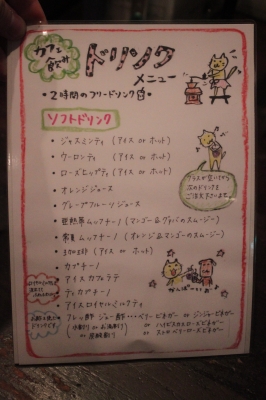 カフェ飲み
ドリンク
メニュー
・2時間のフリードリンク
ソフトドリンク
・ジャスミンティ (アイス or ホット)
・ウーロンティ (アイス or ホット)
・ローズヒップティ (アイス or ホット)
・オレンジジュース
・グレープフルーツジュース
(マンゴー&グァバのスムージー)
(オレンジ&マンゴーのスムージー)
(アイス or ホット)
・カプチーノ
・アイスカフェラテ
・ティカプチーノ
・アイスロイヤルミルクティ
グラスが空いてから
次のドリンクを
ご注文下さいませ
かんぱーい
・フレッ酢 ジュー酢・・・ベリービネガー or ジンジャービネガー
(水割り or お湯割り or 炭酸割り)
or ハイビスカスローズビネガー
or ストロベリーローズビネガー